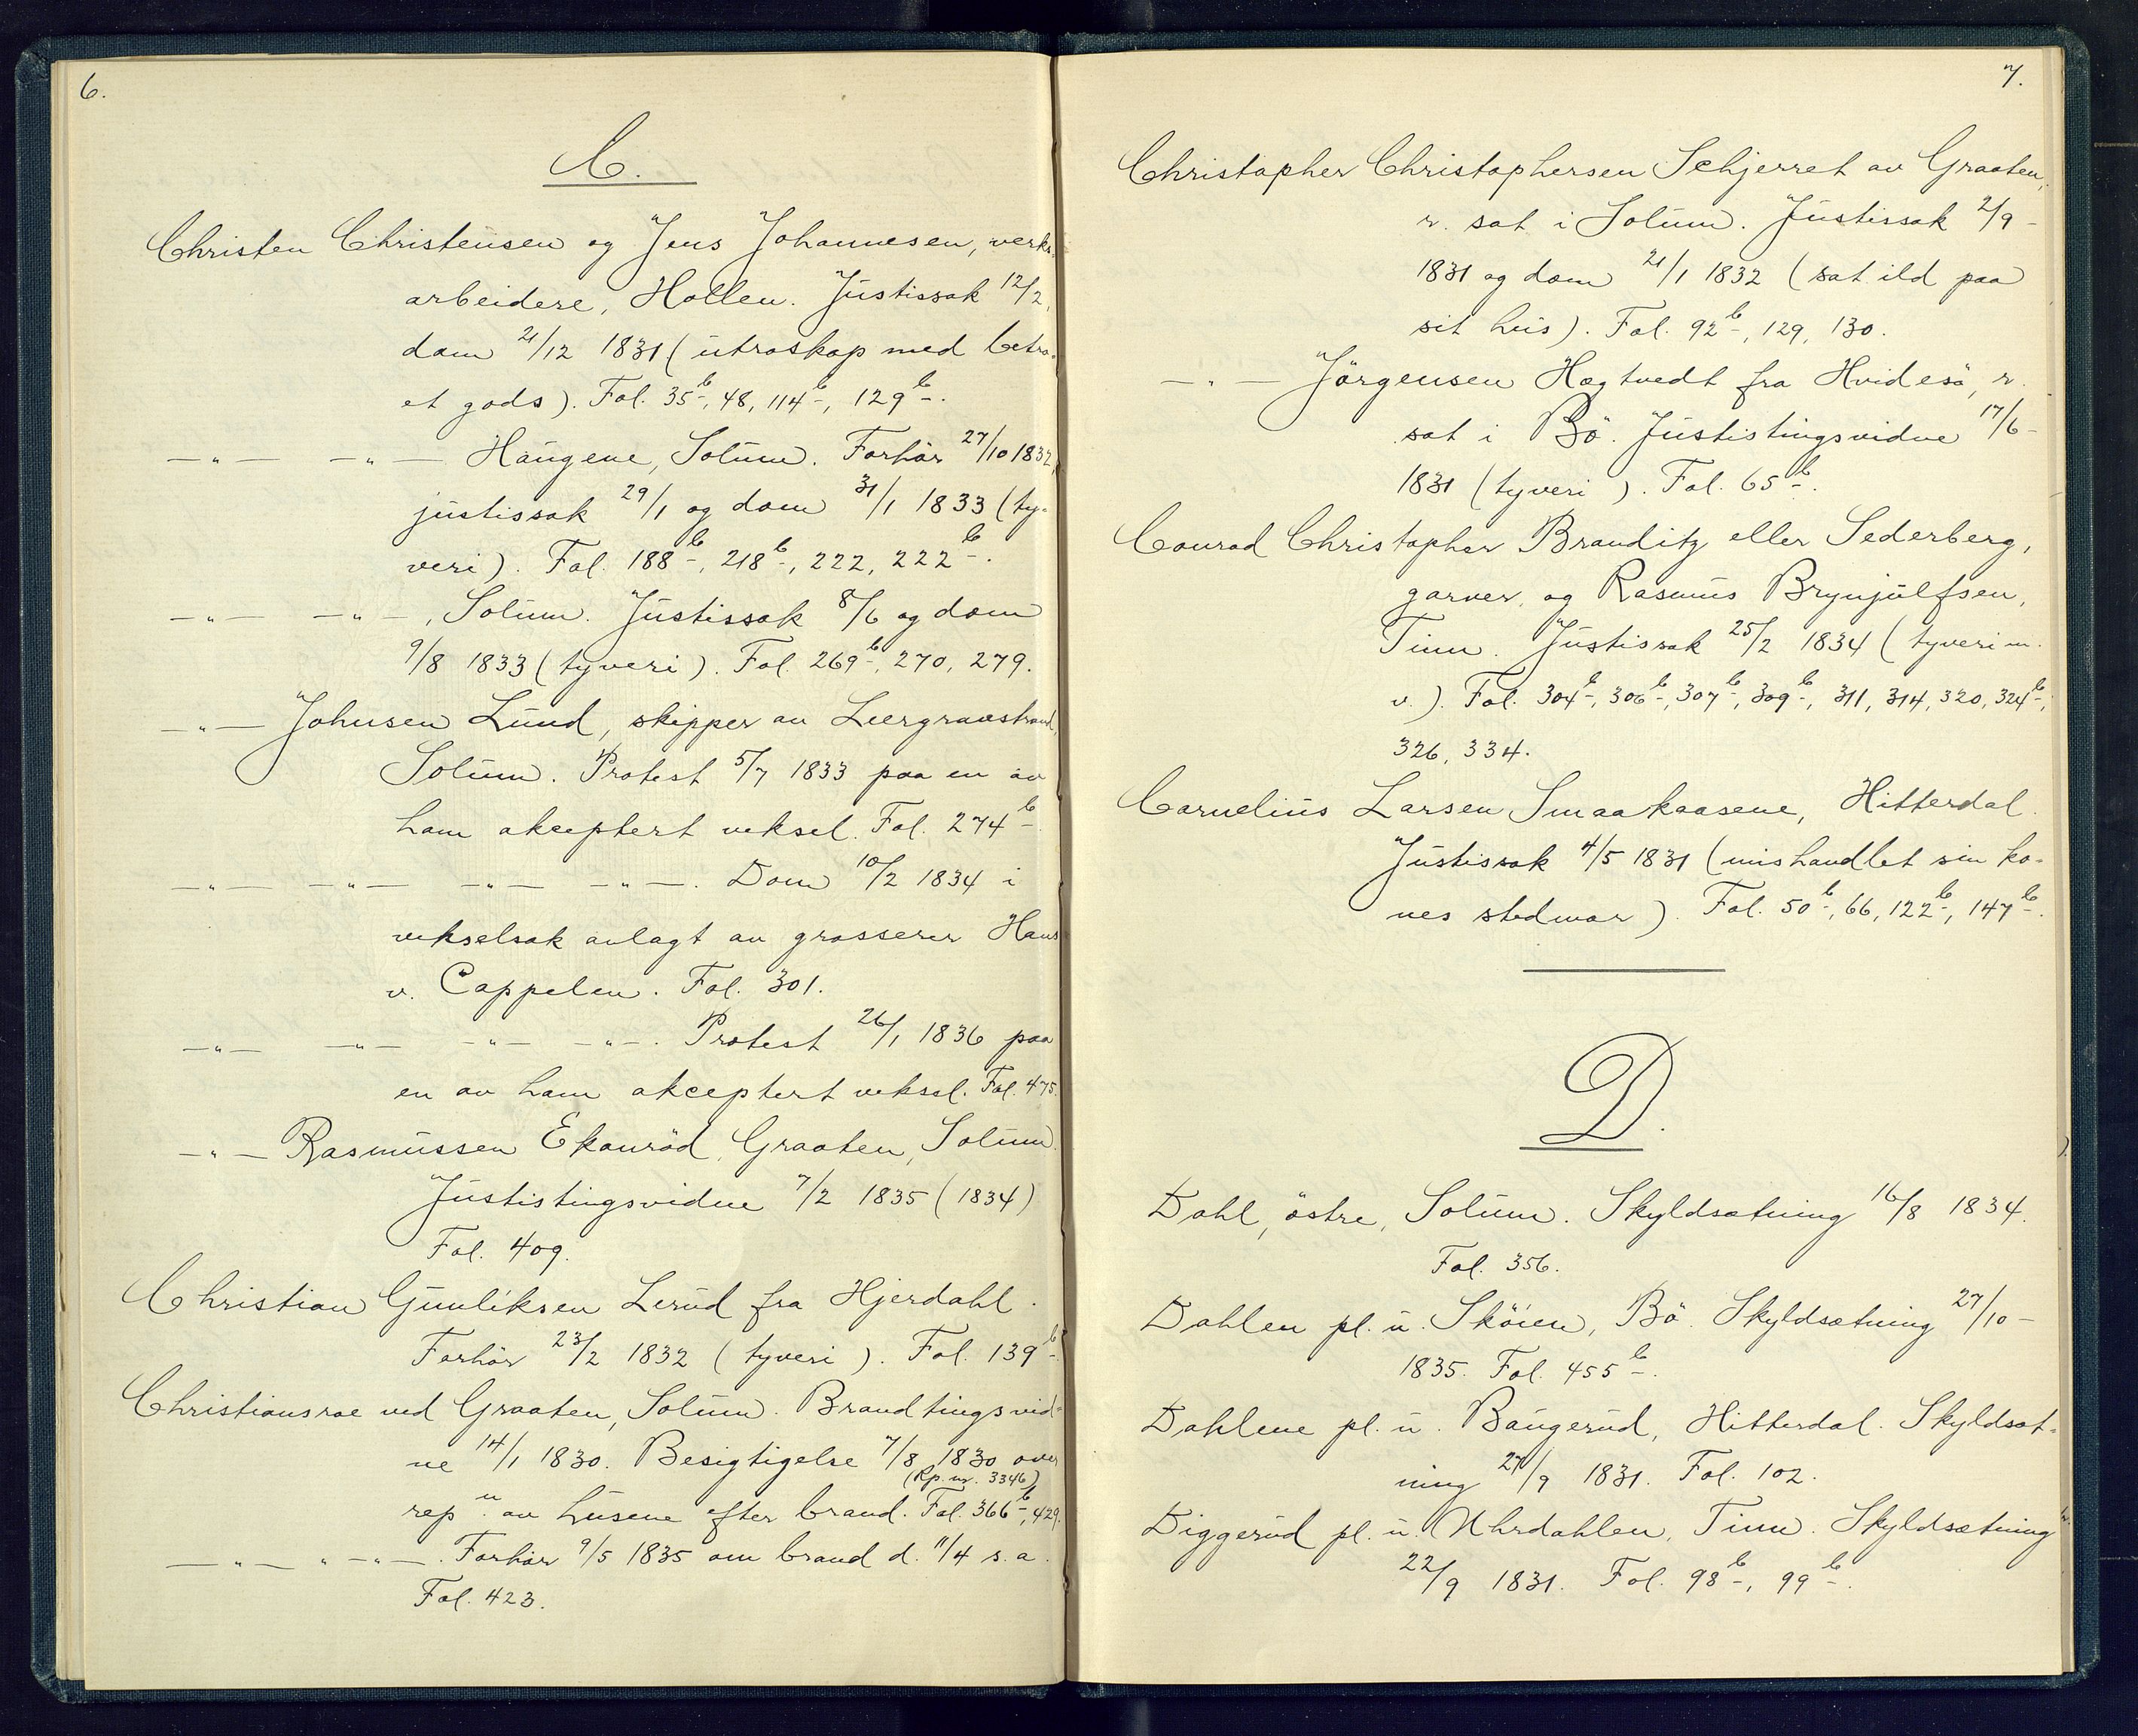 6.
C.
Christen Christensen og Jens Johannesen, verks-
arbeidere, Hollen. Justissak 12/2,
dom 21/12 1831 (utroskap med betro-
et gods). Fol. 35b, 48, 114b, 129b.
—"— —"— Haugene, Solum. Forhör 27/10 1832,
justissak 29/1 og dom 31/1 1833 (ty-
veri). Fol. 188b, 218b, 222, 222b.
—"— —"—, Solum. Justissak 8/6 og dom
9/8 1833 (tyveri). Fol. 269b, 270, 279.
—"— Johnsen Lund, skipper av Leergravstrand,
Solum. Protest 5/7 1833 paa en av
ham akceptert veksel. Fol. 274b.
—"— —"— —"— —"—. Dom 10/2 1834 i
vekselsak anlagt av grosserer Hans
v. Cappelen. Fol. 301.
—"— —"— —"— —"—. Protest 26/1 1836 paa
en av ham akceptert veksel. Fol. 475.
—"— Rasmussen Ekonröd, Graaten, Solum.
Justistingsvidne 7/2 1835 (1834)
Fol. 409.
Christian Gunliksen Lerud fra Hjerdahl.
Forhör 23/2 1832 (tyveri). Fol. 139b.
Christiansroe ved Graaten, Solum. Brandtingsvid-
ne 14/1 1830. Besigtigelse 7/8 1830 over
(Rp. nr. 3346)
rep.n av husene efter brand. Fol. 366b, 429.
—"— " —"—. Forhör 9/5 1835 om brand d. 11/4 s.a.
Fol. 423.
7.
Christopher Christophersen Schjerret av Graaten,
r. sat i Solum. Justissak 2/9-
1831 og dom 21/1 1832 (sat ild paa
sit hus). Fol. 92b, 129, 130.
—"— Jörgensen Hogtvedt fra Hvidesö, r.
sat i Bö. Justistingsvidne 17/6-
1831 (tyveri). Fol. 65b.
Conrad Christopher Branditz eller Sederberg,
garver, og Rasmus Brynjulfsen,
Tinn. Justissak 25/2 1834 (tyveri m.
v.). Fol. 304b, 306b, 307b, 309b, 311, 314, 320, 324b,
326, 334.
Cornelius Larsen Smaakaasene, Hitterdal.
Justissak 4/5 1831 (mishandlet sin ko-
nes stedmor). Fol. 50b, 66, 122b, 147b.
D.
Dahl, östre, Solum. Skyldsætning 16/8 1834.
Fol. 356.
Dahlen pl. u. Sköien, Bö. Skyldsætning 27/10-
1835. Fol. 455b.
Dahlene pl. u. Baugerud, Hitterdal. Skyldsæt-
ning 27/9 1831. Fol. 102.
Diggerud pl. u. Uhrdahlen, Tinn. Skyldsætning
22/9 1831. Fol. 98b, 99b.